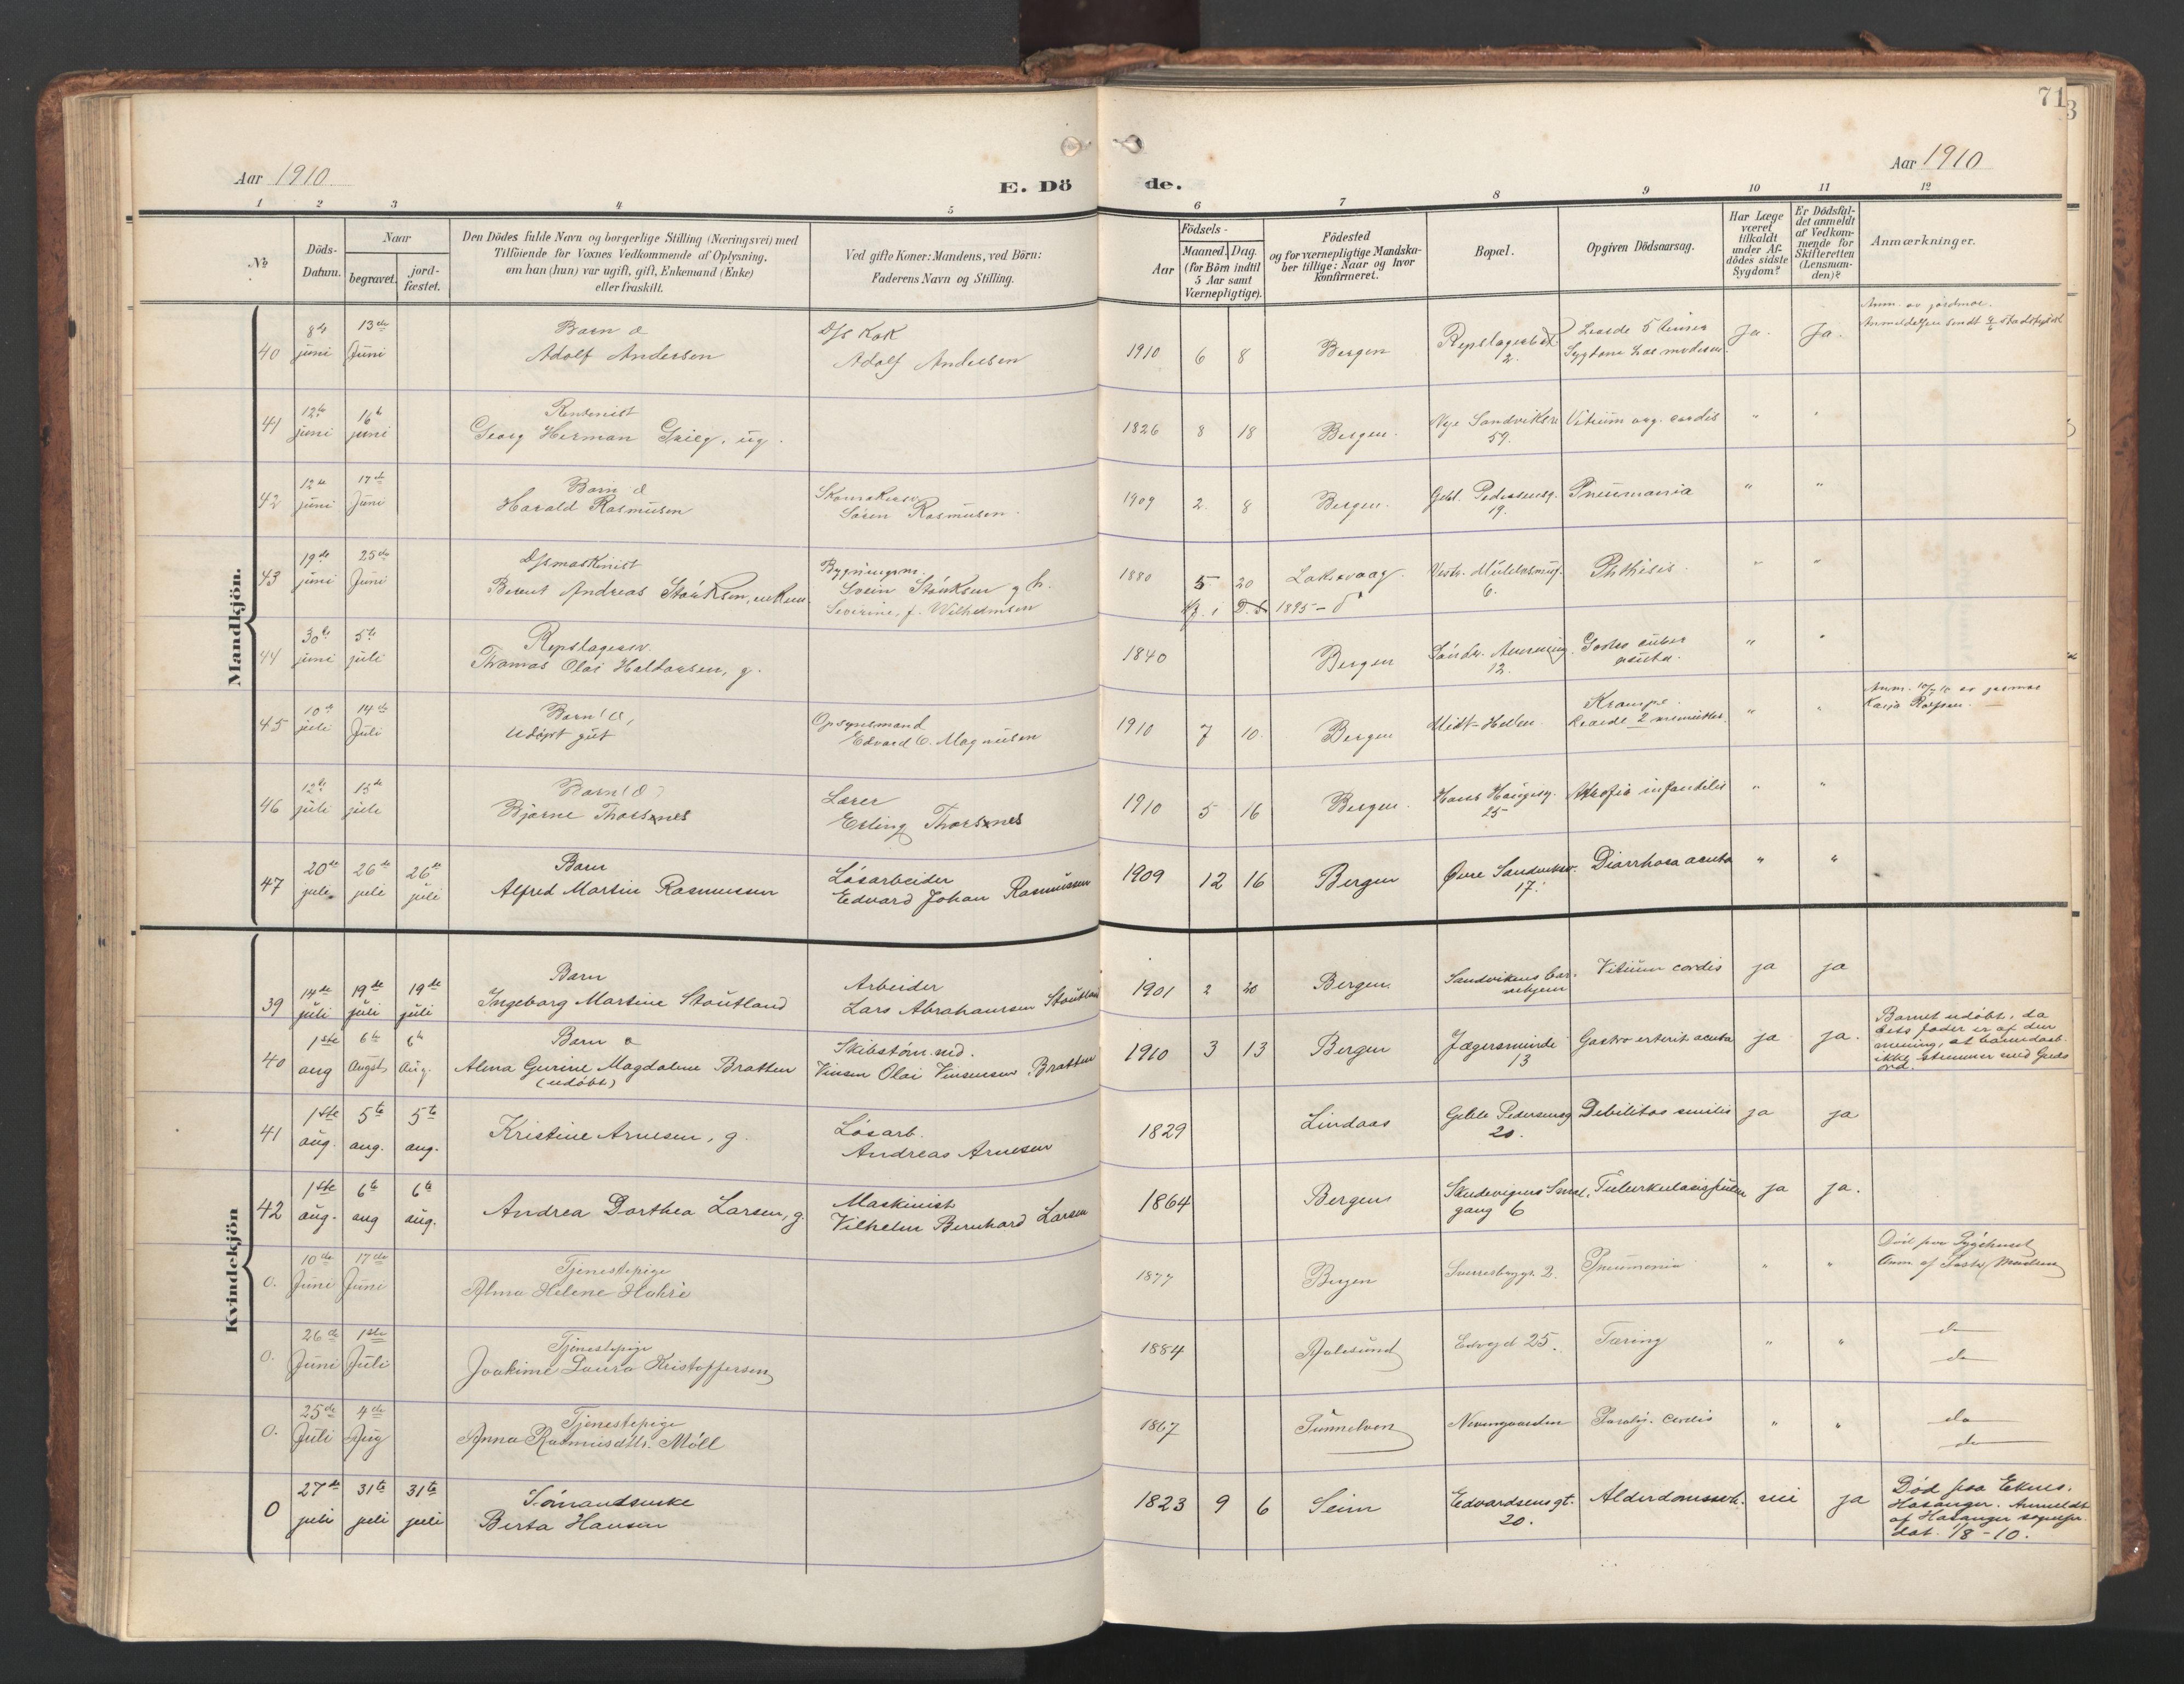 71
3
Aar 1910.
E. Dö
de.
Aar 1910
1 2 3 4 5 6 7 8 9 10 11 12
No
Döds-
Datum.
Naar
begravet.
jord-
fæstet.
Den Dödes fulde Navn og borgerlige Stilling (Næringsvei) med
Tilföiende for Voxnes Vedkommende af Oplysning,
om han (hun) var ugift, gift, Enkemand (Enke)
eller fraskilt.
Ved gifte Koner: Mandens, ved Börn:
Faderens Navn og Stilling.
Födsels-
Aar
Maaned. Dag.
(for Börn indtil
5 Aar samt
Værnepligtige).
Födested
og for værnepligtige Mandska-
ber tillige: Naar og hvor
konfirmeret.
Bopæl.
Opgiven Dödsaarsag.
Har Læge
været
tilkaldt
under Af-
dödes sidste
Sygdom?
Er Dödsfal-
det anmeldt
af Vedkom-
mende for
Skifteretten
(Lensman-
den)?
Anmærkninger.
Mandkjön.
40 8de juni 13de Juni Barn d D/s Kok 1910 6 8 Bergen 2. Levede 5 timer Ja. Ja. Anm. av jordmor.
Adolf Andersen Adolf Andersen
41 12te juni 16de juni Rensenist 1826 8 18 Bergen. Nye Sandviksv. 59. Vitium org. cordis " "
Georg Herman Grieg, ug.
42 12te juni 17de Juni Barn d Skomakersv. 1909 2. 8 Bergen. Gebl. Pedersensg. 19. Pneumonia " "
Harald Rasmusen Søren Rasmusen.
43 19de juni 25de Juni D/smaskinist Bygningssn. 1880 5. 20 Laksevaag. 6. Phthisis. " "
Berent Andreas Størksen, enkem. Svein Størksen g h.
Severine, f. Wilhelmsen 1895 -
44 30te juni 5te juli Repslagersv. 1840 Bergen 12. "
Thomas Olai Haldorsen, g.
45 10de juli 14de Juli Barn! d, Opsynsmand 1910 7 10. Bergen Midt-Hellen. Krampe. " "
Udøpt gut Edvard C. Magnusen levede 2 minutter.
46 12te juli 15de juli Barn! d Lærer 1910 5 16 Bergen. Hans Haugesg. 25 Atrofia infantilis " "
Bjarne Thorsnes Erling Thorsnes
47 20de juli 26de juli 26de juli Barn Løsarbeider 1909 12 16 Bergen Øvre Sandviksv. 17. Diarrhoea acuta " "
Alfred Martin Rasmussen Edvard Johan Rasmussen
Kvindekjön
39 14de juli 19de juli 19de juli Barn Arbeider 1901 2 20 Bergen Sandvikens barnehjem Vitium cordis ja ja
Ingeborg Martine Stoutland Lars Abrahamsen Stoutland
40 1ste aug 6te Augst. 6te Aug. Barn Skibstøm.md. 1910 3 13 Bergen Jægersminde 13 Gastro enterit acuta ja ja. Barnet udøbt, da
dets fader er af den
mening, at barnedaab
ikke stemmer med Guds
ord.
Alma Gurine Magdalene Bratten Vinsen Olai Vinsensen Bratten
(udøbt)
41 1ste aug. 5te aug. 5te aug. Kristine Arnesen, g. Løsarb. 1829 Lindaas Geble Pedersensg 20. Debilitas senilis ja ja
Andreas Arnesen
42 1ste aug. 6te aug 6te aug. Andrea Dorthea Larsen, g. Maskinist 1864 Bergen Skudevigens Smal-
gang 6 ja ja.
Vilhelm Bernhard Larsen
0. 10de Juni 17de Juni Tjenestepige 1877 Bergen Sverresborggt. 2. Pneumonia " " Død paa Sygehuset
Alma Helene
0. 26de Juni 1ste Juli Tjenestepige 1884 Aalesund 25. Tæring " " do
Joakime Laura Kristoffersen do
0. 25de Juli 4de Aug Tjenestepige 1867 Paralys. cordis " " do
Anna Rasmusdtr. Møll do
0 27de juli 31te juli 31te juli Sømandsenke 1823 9 6 Seim Edvardsensgt. 20. Alderdomssvk. nei ja Død paa Eknes,
Hosanger. Anmeldt
af Hosanger sognepr.
dat. 1/8-10.
Berta Hansen